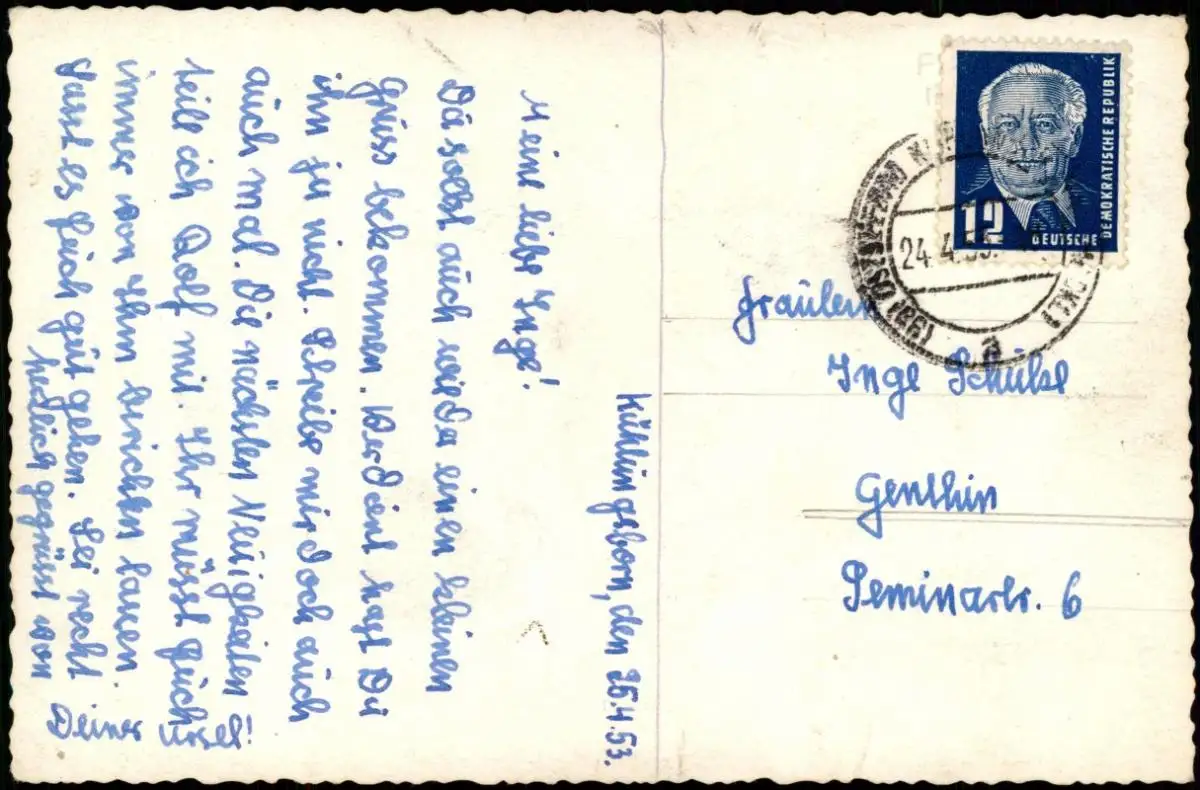 Kühlungsborn, den 25.4.53.
Meine liebe Inge!
Du sollst auch wieder einen kleinen
Gruss bekommen. Verdient hast Du
ihn ja nicht. Schreibe mir doch auch
auch mal. Die nächsten Neuigkeiten
teile ich Rolf mit. Ihr müsst Euch
immer von Ihm berichten lassen.
Lasst es Euch gut gehen. Sei recht
herzlich gegrüsst von
Deiner Ursel!
DEUTSCHE
DEMOKRATISCHE REPUBLIK
12
24.4.53.
(99) OSTSEEBAD
a
Fräulein
Inge Schulze
Genthin
Seminarstr. 6